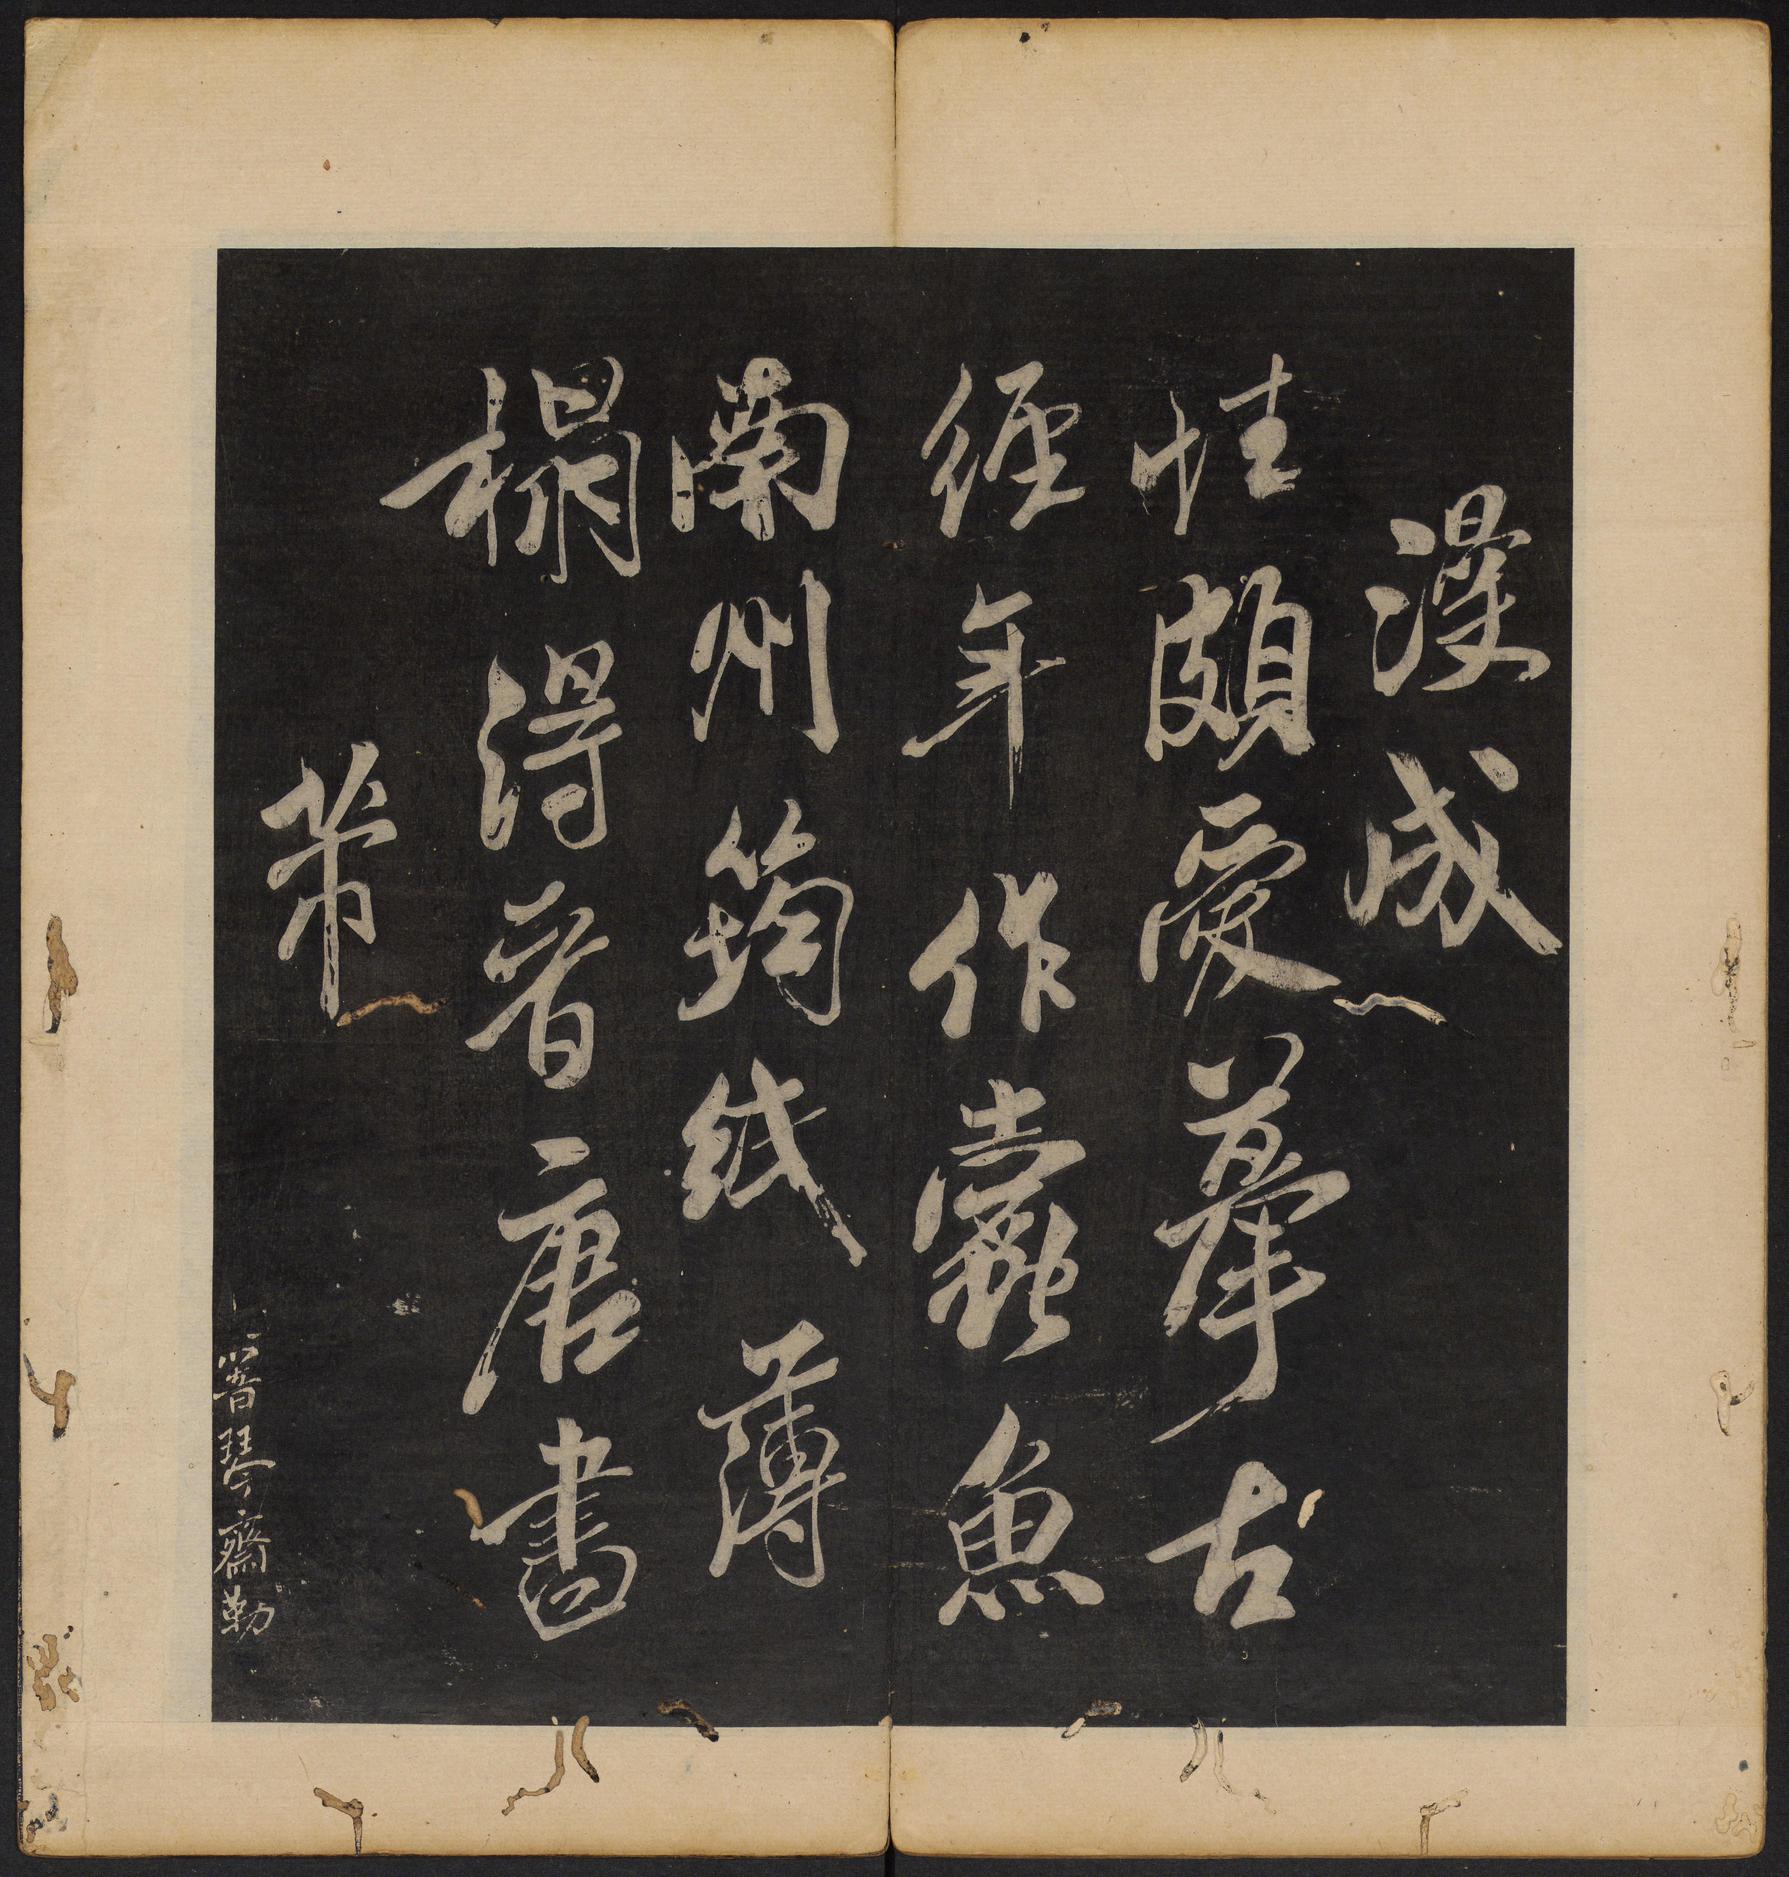 漫成
性頗愛摹古
經年作蠹魚
南州筠紙薄
榻得晉唐書
芾
琴齋勒